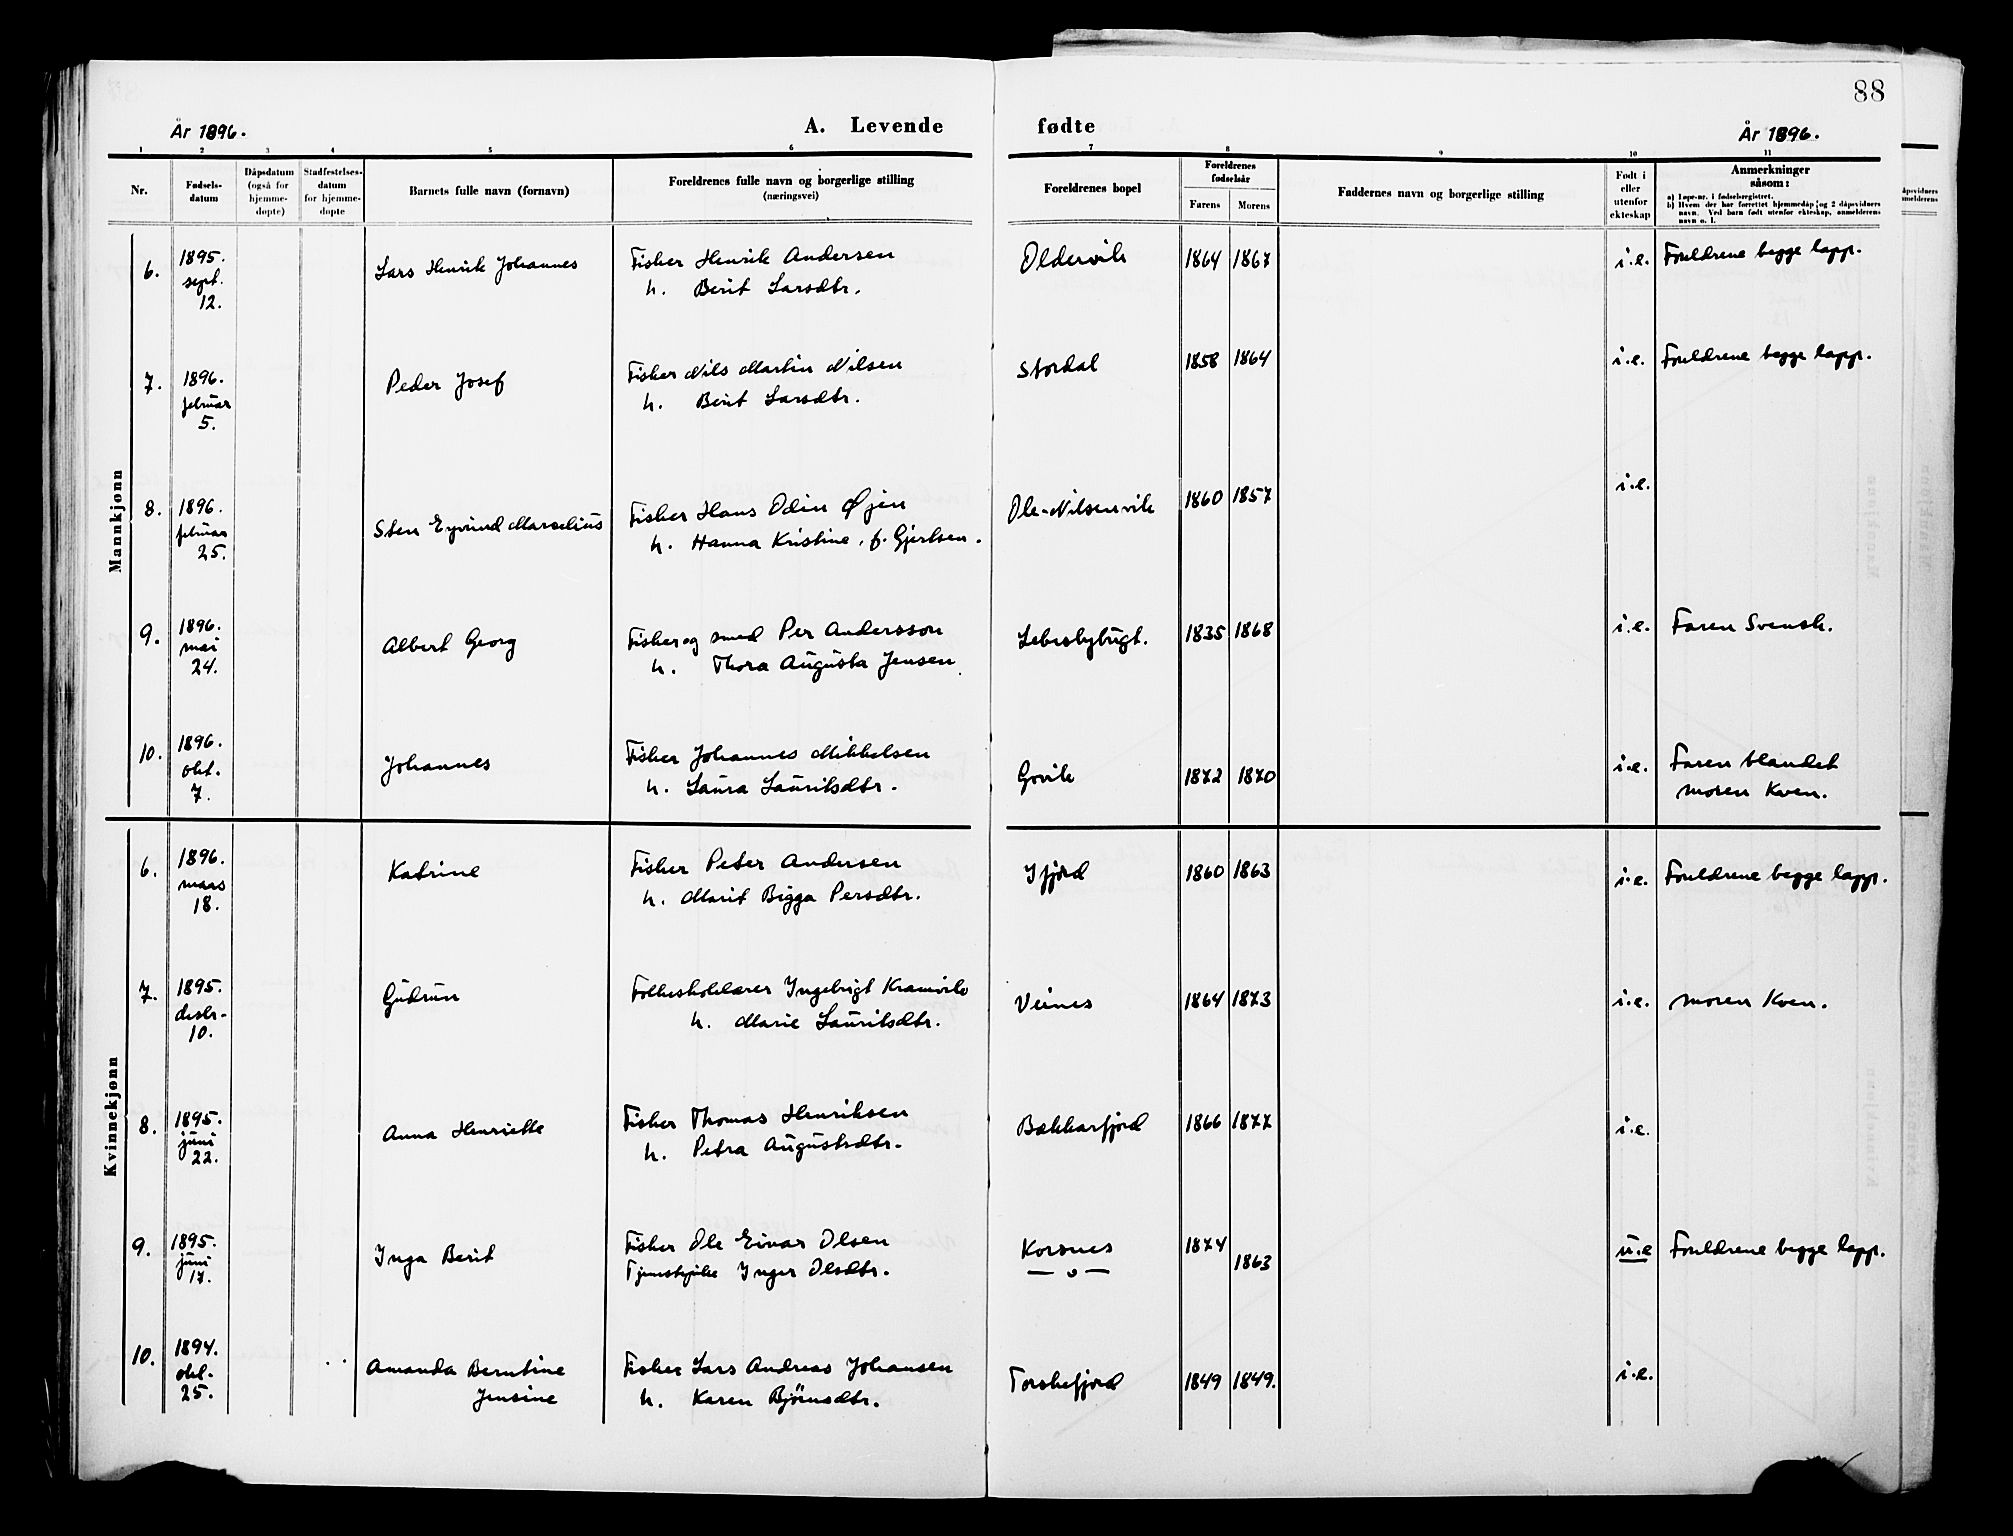 88
År 1896.
A. Levende fødte
År 1896.
1 2 3 4 5 6 7 8 9 10 11
Nr.
Fødsels-
datum
Dåpsdatum
(også for
hjemme-
døpte)
Stadfestelses-
datum
for hjemme-
døpte
Barnets fulle navn (fornavn)
Foreldrenes fulle navn og borgerlige stilling
(næringsvei)
Foreldrenes bopel
Foreldrenes
fødselsår
Farens Morens
Faddernes navn og borgerlige stilling
Født i
eller
utenfor
ekteskap
Anmerkninger
såsom:
a) Løpe-nr. i fødselsregistret.
b) Hvem der har forrettet hjemmedåp og 2 dåpsvidners
navn. Ved barn født utenfor ekteskap, anmelderens
navn o. l.
Mannkjønn
6. 1895. sept. 12. Lars Henrik Johannes Fisker Henrik Andersen Oldervik 1864 1867 i.e. Foreldrene begge lapp.
h. Berit Larsdtr.
7. 1896. februar 5. Peder Josef Fisker Nils Martin Nilsen Stordal 1858 1864 i.e. Foreldrene begge lapp.
h. Berit Larsdtr.
8. 1896. februar 25. Sten Eyvind Marselius Fisker Hans Odin Øjen Ole-Nilsenvik 1860 1857 i.e.
h. Hanna Kristine, f. Gjertsen.
9. 1896. mai 24. Albert Georg Fisker og smed Per Andersson Lebesbybugt. 1835 1868 i.e. Faren Svensk.
h. Thora Augusta Jensen.
10. 1896. okt. 7. Johannes Fisker Johannes Mikkelsen Govik 1872 1870 i.e. Faren blandet
h. Laura Lauritsdtr. moren Kven.
Kvinnekjønn
6. 1896. mars 18. Katrine Fisker Peter Andersen Ifjord 1860 1863 i.e. Foreldrene begge lapp.
h. Marit Bigga Persdtr.
7. 1895. desbr. 10. Gudrun Folkeskolelærer Ingebrigt Kramvik Veines 1864 1873 i.e. moren Kven.
h. Marie Lauritsdtr.
8. 1895. juni 22. Anna Henriette Fisker Thomas Henriksen Bekkarfjord 1866 1877 i.e.
h. Petra Augustsdtr.
9. 1895. juni 17. Inga Berit Fisker Ole Eivar Olsen Korsnes 1874 u.e Foreldrene begge lapp.
Tjenestepike Inger Olsdtr. — o — 1863
10. 1894. okt. 25. Amanda Berntine Fisker Lars Andreas Johansen Torskefjord 1849 1849. i.e.
Jensine h. Karen Bjørnsdtr.